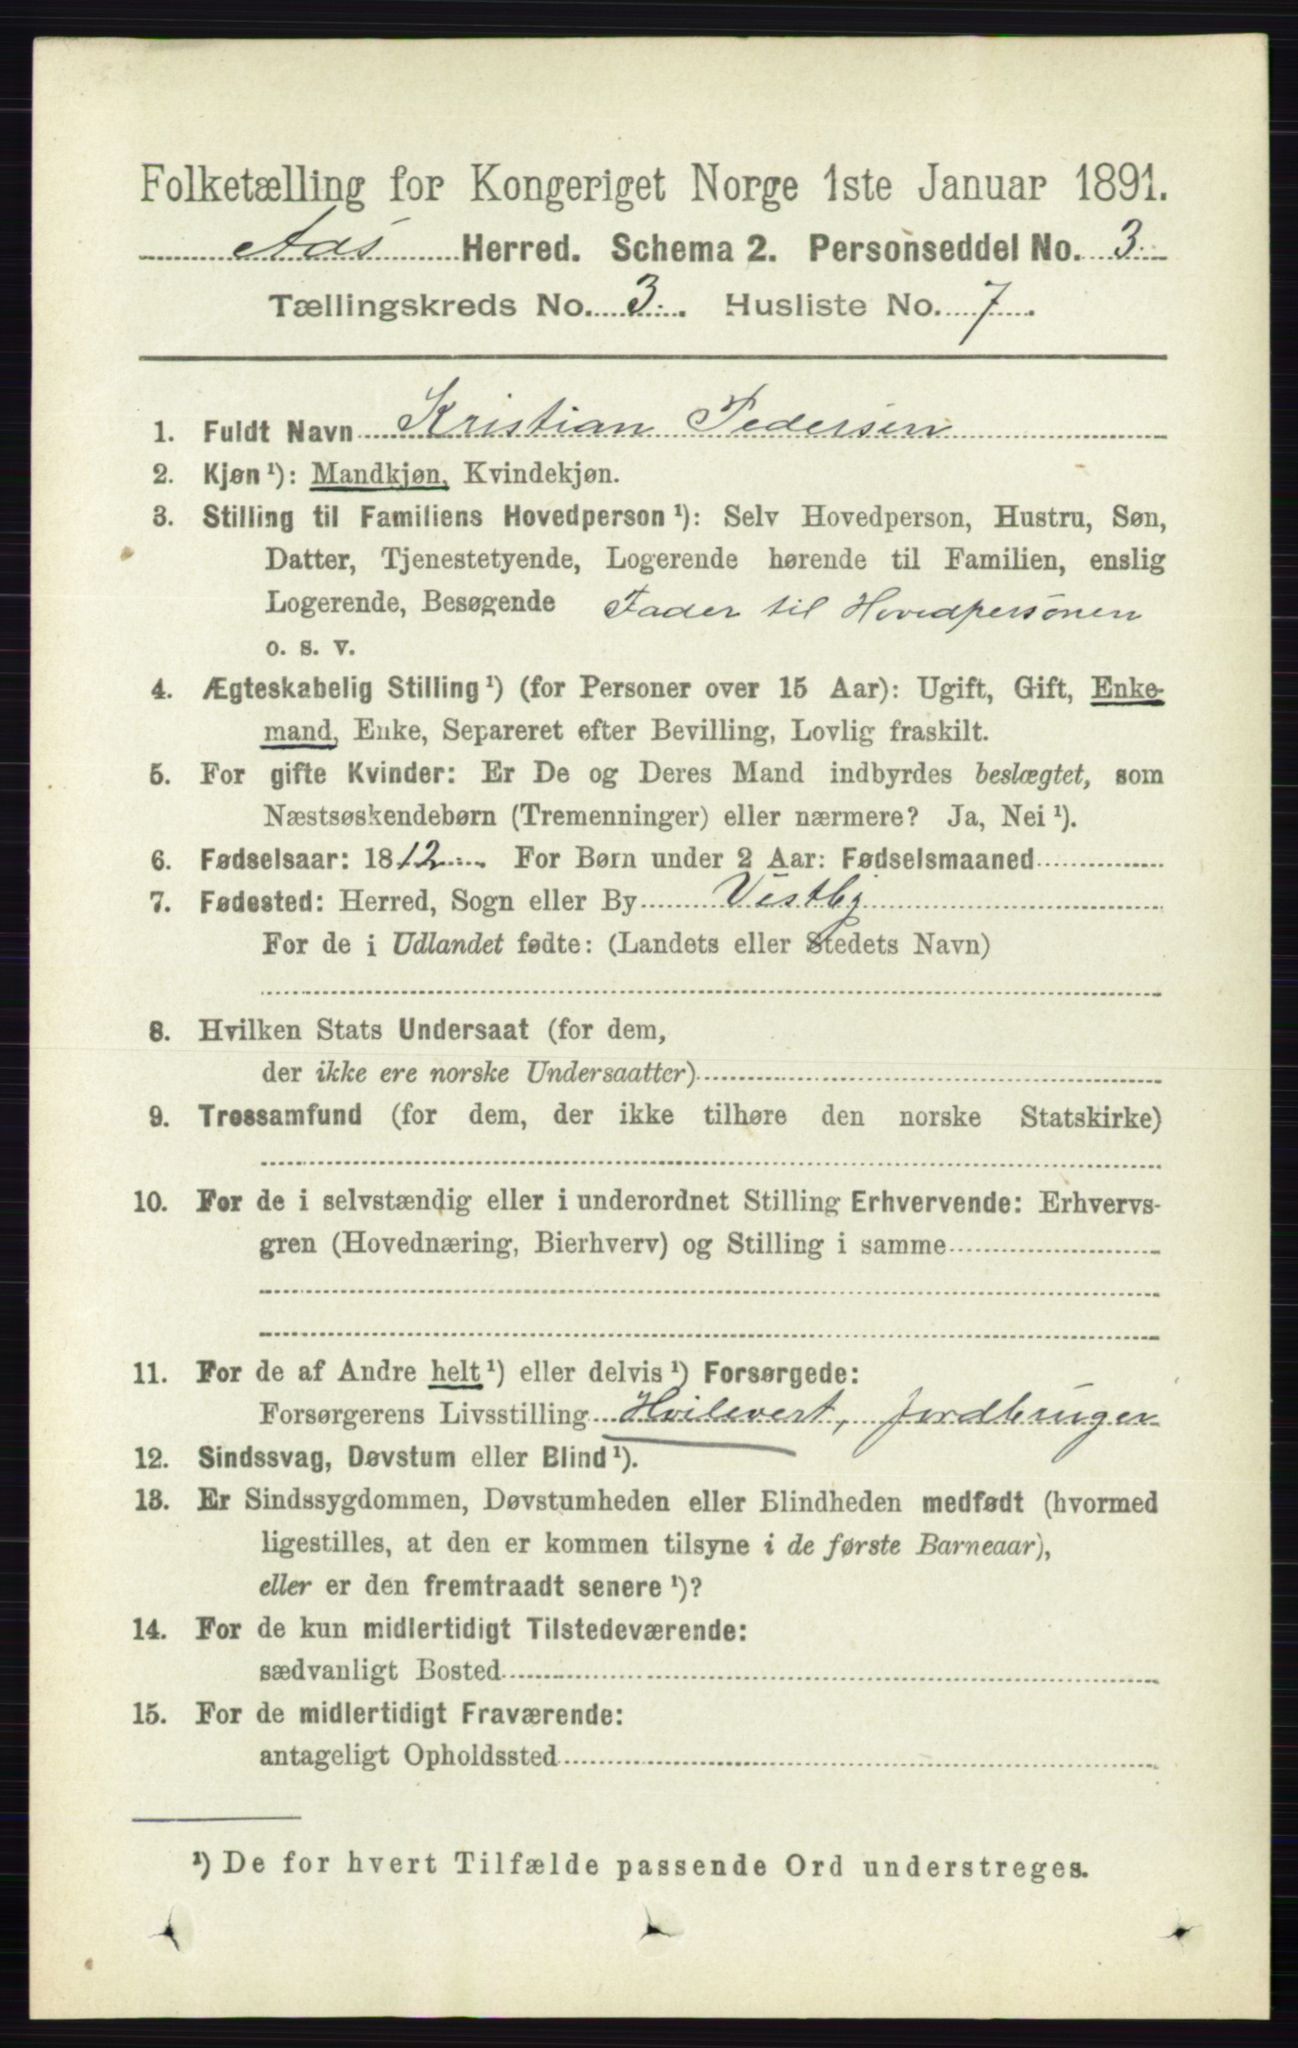 Folketælling for Kongeriget Norge 1ste Januar 1891.
Aas Herred. Schema 2. Personseddel No. 3
Tællingskreds No. 3. Husliste No. 7.
1. Fuldt Navn Kristian Pedersen
2. Kjøn ¹): Mandkjøn, Kvindekjøn.
3. Stilling til Familiens Hovedperson ¹): Selv Hovedperson, Hustru, Søn,
Datter, Tjenestetyende, Logerende hørende til Familien, enslig
Logerende, Besøgende Fader til Hovedpersonen
o. s. v.
4. Ægteskabelig Stilling ¹) (for Personer over 15 Aar): Ugift, Gift, Enke-
mand, Enke, Separeret efter Bevilling, Lovlig fraskilt.
5. For gifte Kvinder: Er De og Deres Mand indbyrdes beslægtet, som
Næstsøskendebørn (Tremenninger) eller nærmere? Ja, Nei ¹).
6. Fødselsaar: 1812. For Børn under 2 Aar: Fødselsmaaned
7. Fødested: Herred, Sogn eller By Vestby
For de i Udlandet fødte: (Landets eller Stedets Navn)
8. Hvilken Stats Undersaat (for dem,
der ikke ere norske Undersaatter)
9. Trossamfund (for dem, der ikke tilhøre den norske Statskirke)
10. For de i selvstændig eller i underordnet Stilling Erhvervende: Erhvervs-
gren (Hovednæring, Bierhverv) og Stilling i samme
11. For de af Andre helt ¹) eller delvis ¹) Forsørgede:
Forsørgerens Livsstilling Hvilevert, Jordbruger
12. Sindssvag, Døvstum eller Blind ¹).
13. Er Sindssygdommen, Døvstumheden eller Blindheden medfødt (hvormed
ligestilles, at den er kommen tilsyne i de første Barneaar),
eller er den fremtraadt senere ¹)?
14. For de kun midlertidigt Tilstedeværende:
sædvanligt Bosted
15. For de midlertidigt Fraværende:
antageligt Opholdssted
¹) De for hvert Tilfælde passende Ord understreges.